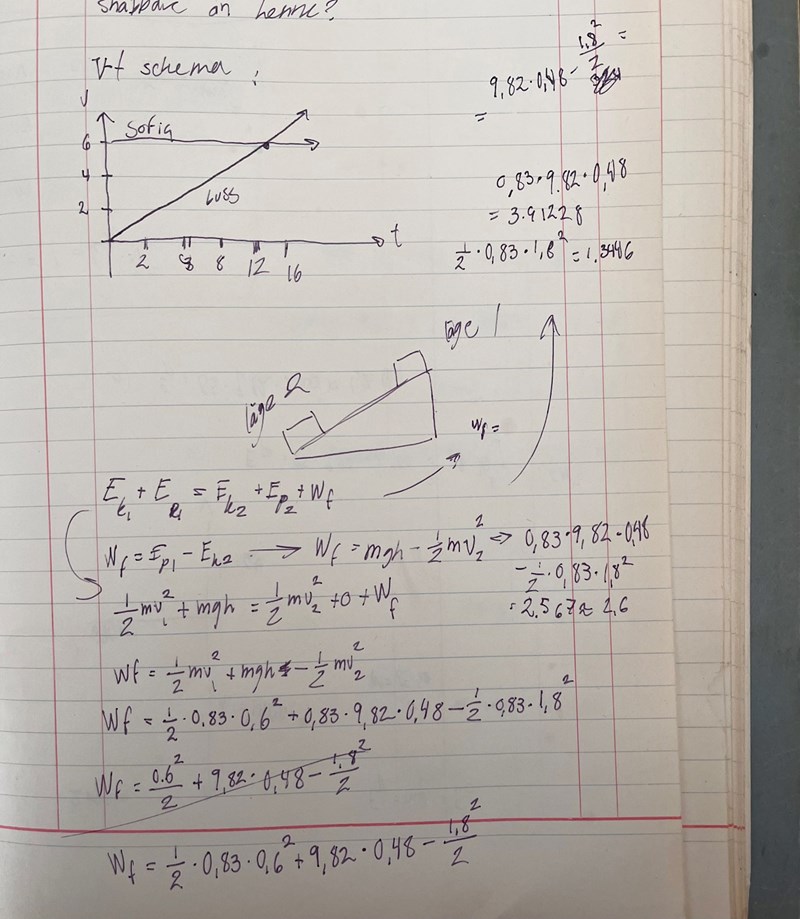 snabbare än henne?
V-t schema :
v
6
4
2
Sofia
Luss
t
2 8 8 12 16
9,82·0,48 - 1,8²/2 =
=
0,83·9,82·0,48
= 3.91228
1/2·0,83·1,8² = 1.3446
läge 1
läge 2
Wf =
Ek1 + Ep1 = Ek2 + Ep2 + Wf
Wf = Ep1 - Ek2 → Wf = mgh - 1/2mv2² => 0,83·9,82·0,48
- 1/2·0,83·1,8²
= 2.567 ≈ 2,6
1/2mv1² + mgh = 1/2mv2² + 0 + Wf
Wf = 1/2mv1² + mgh - 1/2mv2²
Wf = 1/2·0,83·0,6² + 0,83·9,82·0,48 - 1/2·0,83·1,8²
Wf = 0.6²/2 + 9,82·0,48 - 1,8²/2
Wf = 1/2·0,83·0,6² + 9,82·0,48 - 1,8²/2